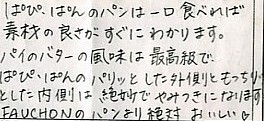 ぱぴ、ぱんのパンは一口食べれば
素材の良さがすぐにわかります。
パイのバターの風味は最高級で、
ぱぴ、ぱんのパリッとした外側ともっちり
とした内側は絶妙でやみつきになります
FAUCHONのパンより絶対おいしい♡